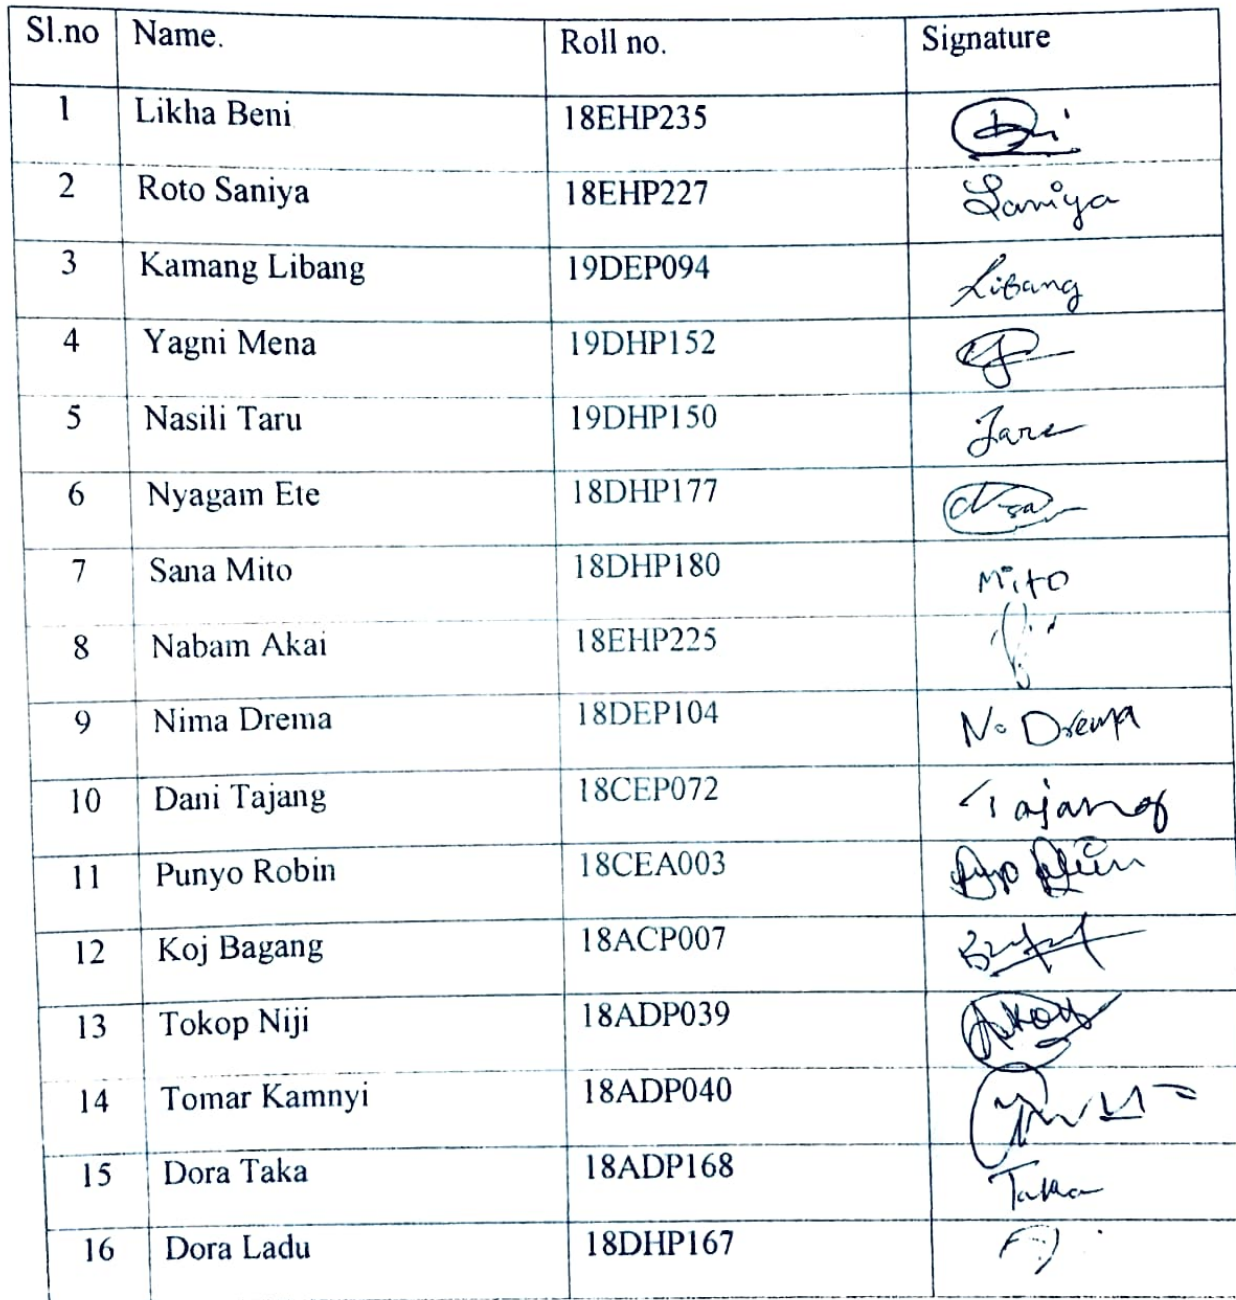 Sl.no Name. Roll no. Signature
1 Likha Beni 18EHP235
2 Roto Saniya 18EHP227 Saniya
3 Kamang Libang 19DEP094 Libang
4 Yagni Mena 19DHP152
5 Nasili Taru 19DHP150
6 Nyagam Ete 18DHP177
7 Sana Mito 18DHP180 Mito
8 Nabam Akai 18EHP225
9 Nima Drema 18DEP104 N. Drema
10 Dani Tajang 18CEP072 Tajang
11 Punyo Robin 18CEA003
12 Koj Bagang 18ACP007
13 Tokop Niji 18ADP039
14 Tomar Kamnyi 18ADP040
15 Dora Taka 18ADP168 Taka
16 Dora Ladu 18DHP167